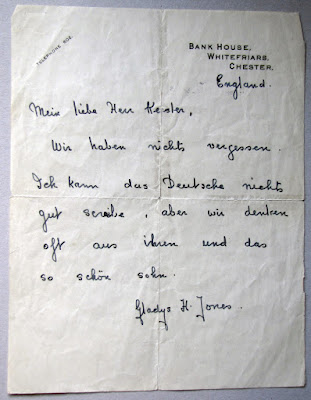 TELEPHONE 802.
BANK HOUSE,
WHITEFRIARS,
CHESTER.
England.
Mein liebe Herr Kester,
Wir haben nichts vergessen.
Ich kann das Deutsche nichts
gut scribe, aber wir denken
oft aus ihren und das
so schön sohn.
Gladys H. Jones.